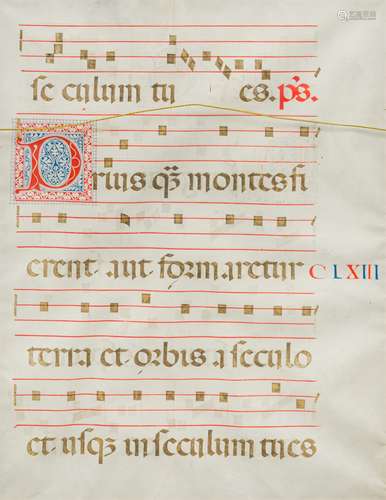 seculum tu es. ps.
Prius q̃ȝ montes fi
erent aut formaretur CLXIII
terra et orbis a seculo
et usqȝ in seculum tu es